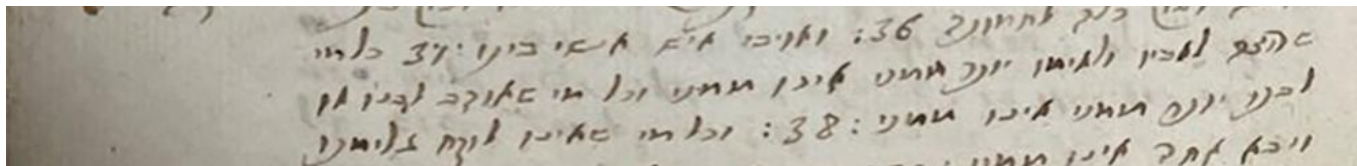 כלה לחמותה 36: ואויבי איש אנשי ביתו: 37 כל מי
שאהב לאביו ולאימו יותר ממני אינו ממני וכל מי שאוהב לבנו או
לבתו יותר ממני אינו ממני: 38: וכל מי שאינו לוקח צלימתו
ויבא אחרי אינו ממני